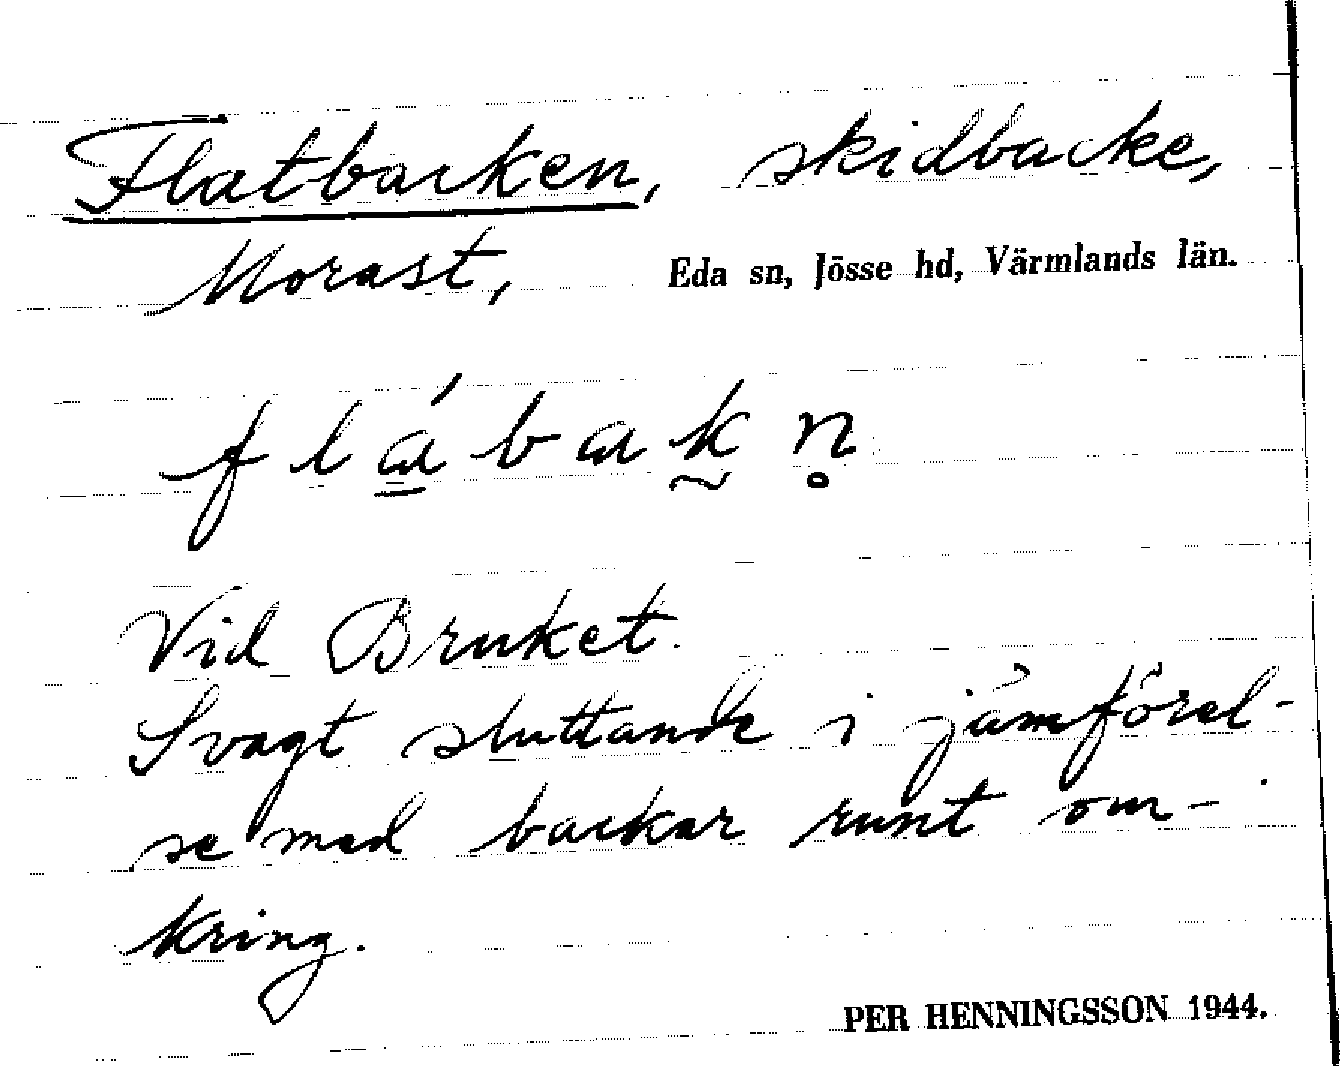 Flatbacken, skidbacke,
Morast, Eda sn, Jösse hd, Värmlands län.
flábakn̥
Vid Bruket.
Svagt sluttande i jämförel-
se med backar runt om-
kring.
PER HENNINGSSON 1944.